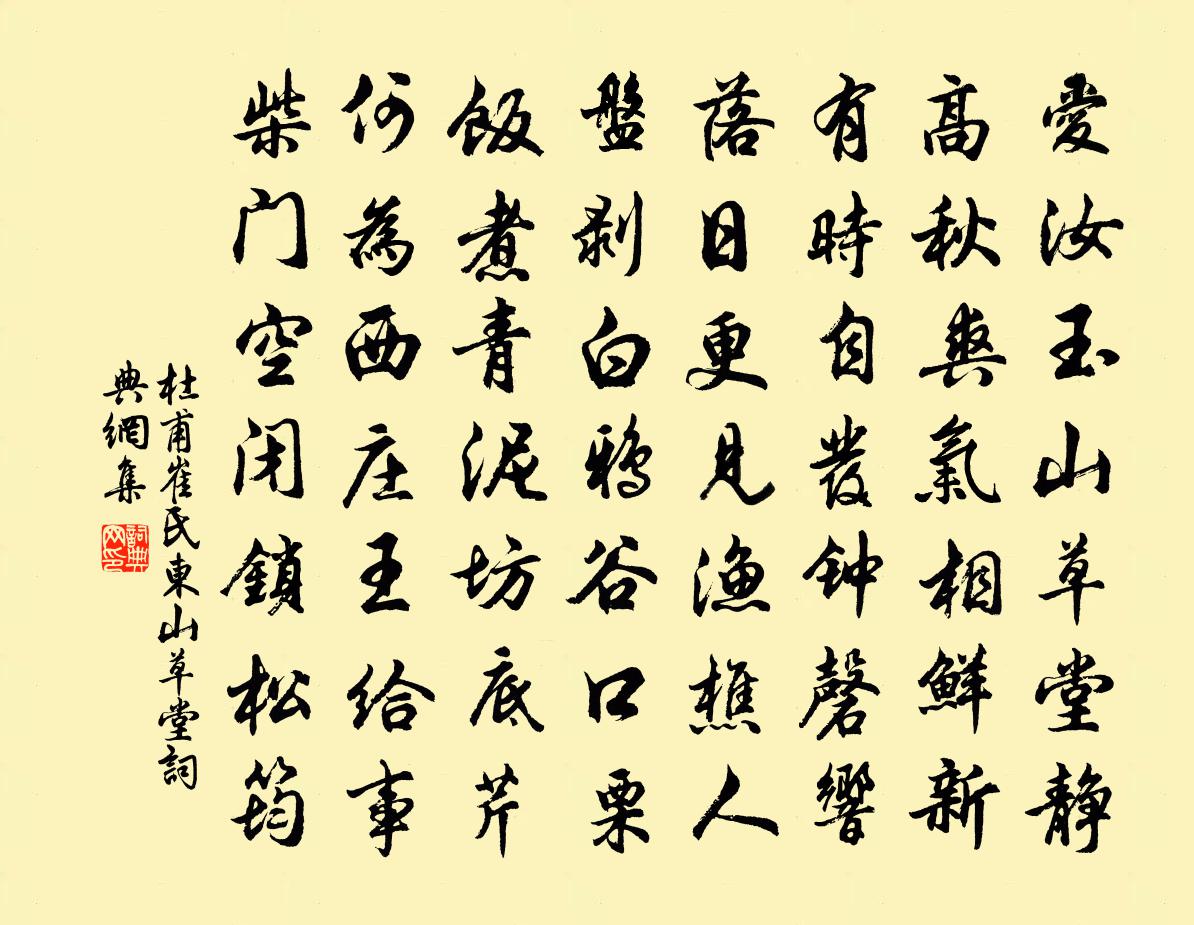 愛汝玉山草堂静
高秋爽氣相鮮新
有時自發钟磬響
落日更見漁樵人
盤剥白鴉谷口栗
飯煮青泥坊底芹
何為西庄王给事
柴门空闭鎖松筠
杜甫崔氏東山草堂詞
典網集
詞典
网印